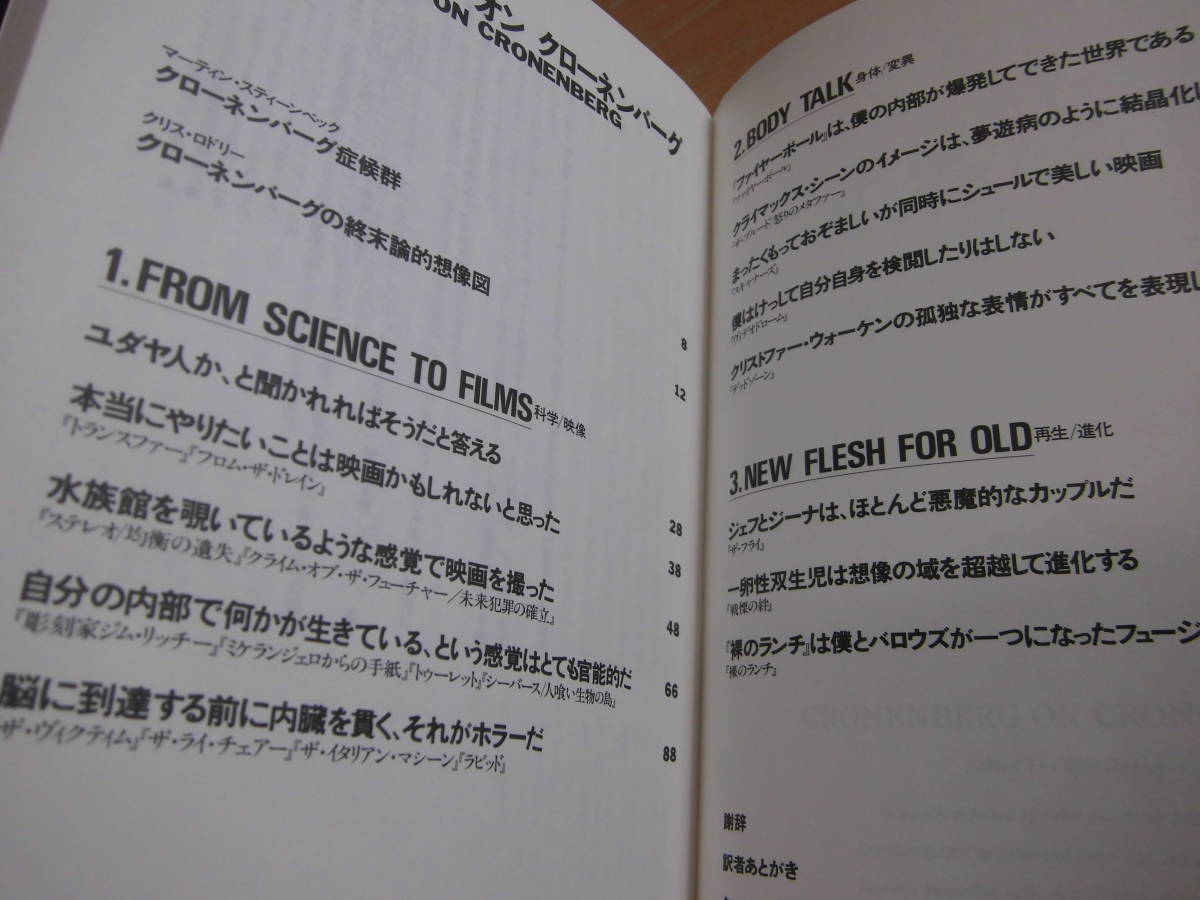 オン クローネンバーグ
ON CRONENBERG
マーティン・スティーンベック
クローネンバーグ症候群
8
クリス・ロドリー
クローネンバーグの終末論的想像図
12
1.FROM SCIENCE TO FILMS 科学/映像
ユダヤ人か、と聞かれればそうだと答える
28
本当にやりたいことは映画かもしれないと思った
『トランスファー』『フロム・ザ・ドレイン』
38
水族館を覗いているような感覚で映画を撮った
『ステレオ/均衡の遺失』『クライム・オブ・ザ・フューチャー/未来犯罪の確立』
48
自分の内部で何かが生きている、という感覚はとても官能的だ
『彫刻家ジム・リッチー』『ミケランジェロからの手紙』『トゥーレット』『シーバース/人喰い生物の島』
66
脳に到達する前に内臓を貫く、それがホラーだ
ザ・ヴィクティム』『ザ・ライ・チェアー』『ザ・イタリアン・マシーン』『ラビッド』
88
2.BODY TALK 身体/変異
『ファイヤーボール』は、僕の内部が爆発してできた世界である
『ファイヤーボール』
クライマックス・シーンのイメージは、夢遊病のように結晶化し
『ザ・ブルード/怒りのメタファー』
まったくもっておぞましいが同時にシュールで美しい映画
『スキャナーズ』
僕はけっして自分自身を検閲したりはしない
『ヴィデオドローム』
クリストファー・ウォーケンの孤独な表情がすべてを表現し
『デッドゾーン』
3.NEW FLESH FOR OLD 再生/進化
ジェフとジーナは、ほとんど悪魔的なカップルだ
『ザ・フライ』
一卵性双生児は想像の域を超越して進化する
『戦慄の絆』
『裸のランチ』は僕とバロウズが一つになったフュージ
『裸のランチ』
謝辞
訳者あとがき